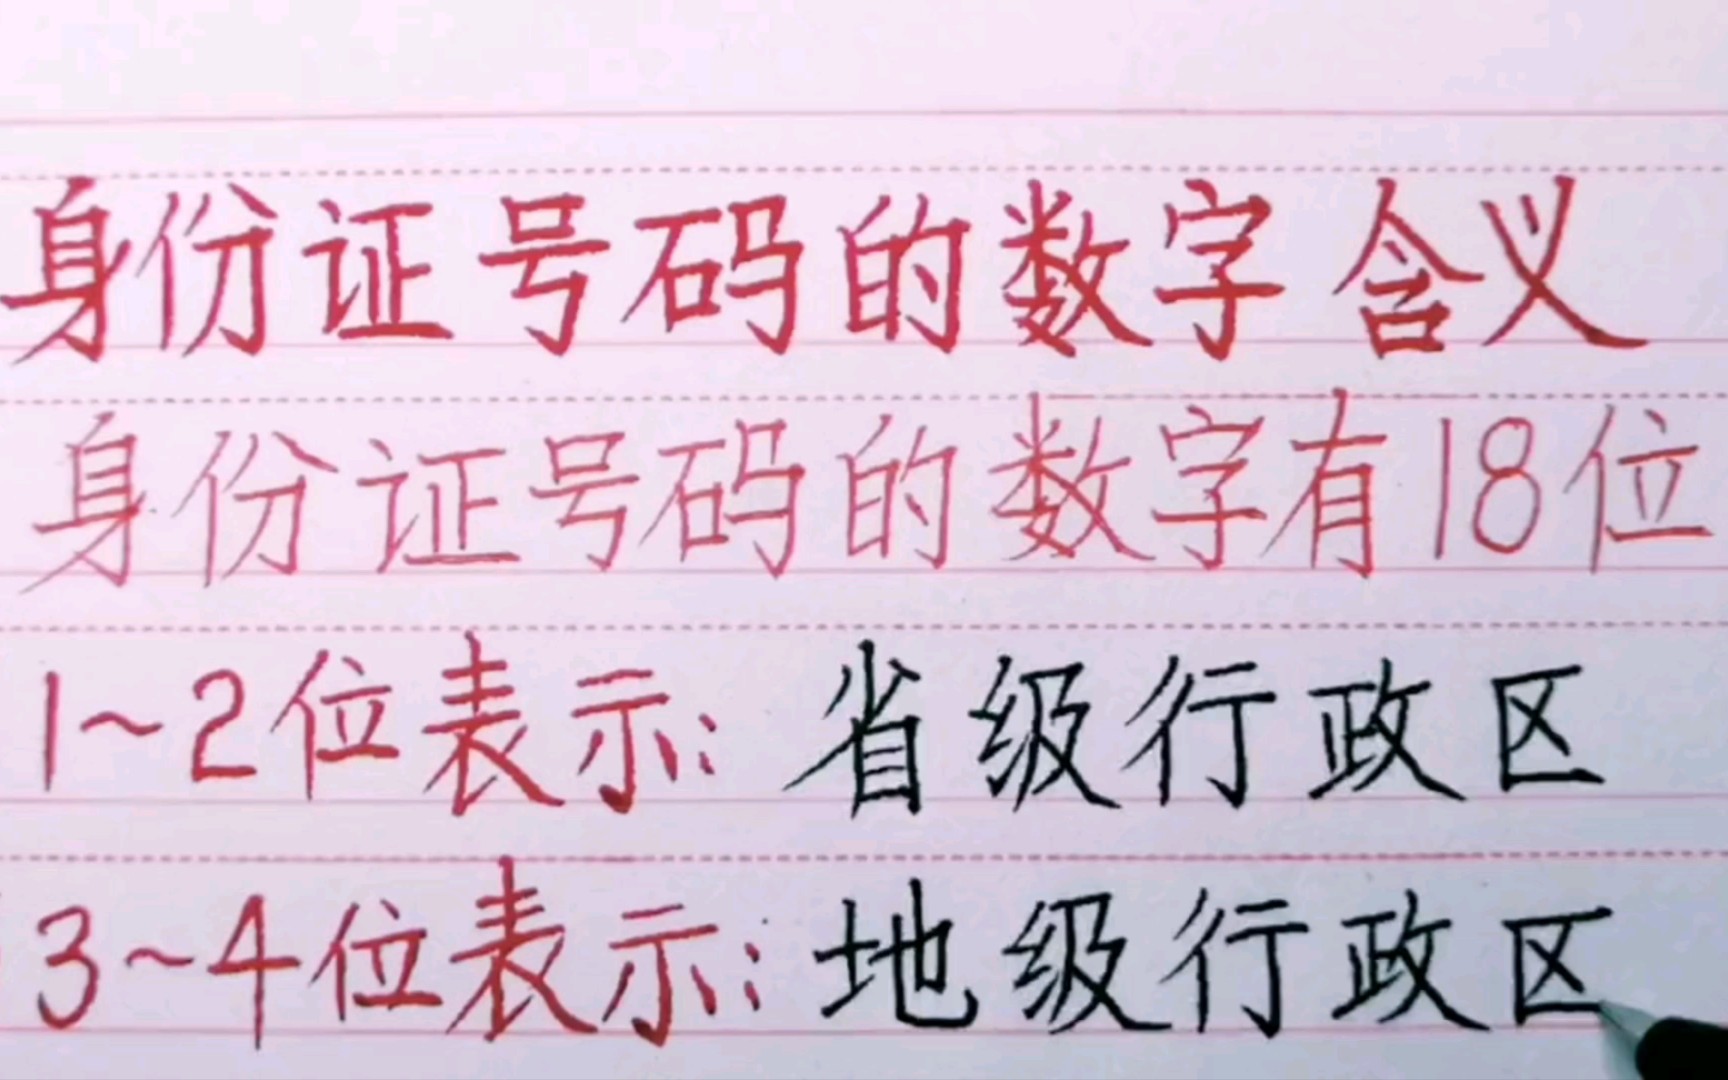 身份证号码的数字含义
身份证号码的数字有18位
1~2位表示:省级行政区
3~4位表示:地级行政区